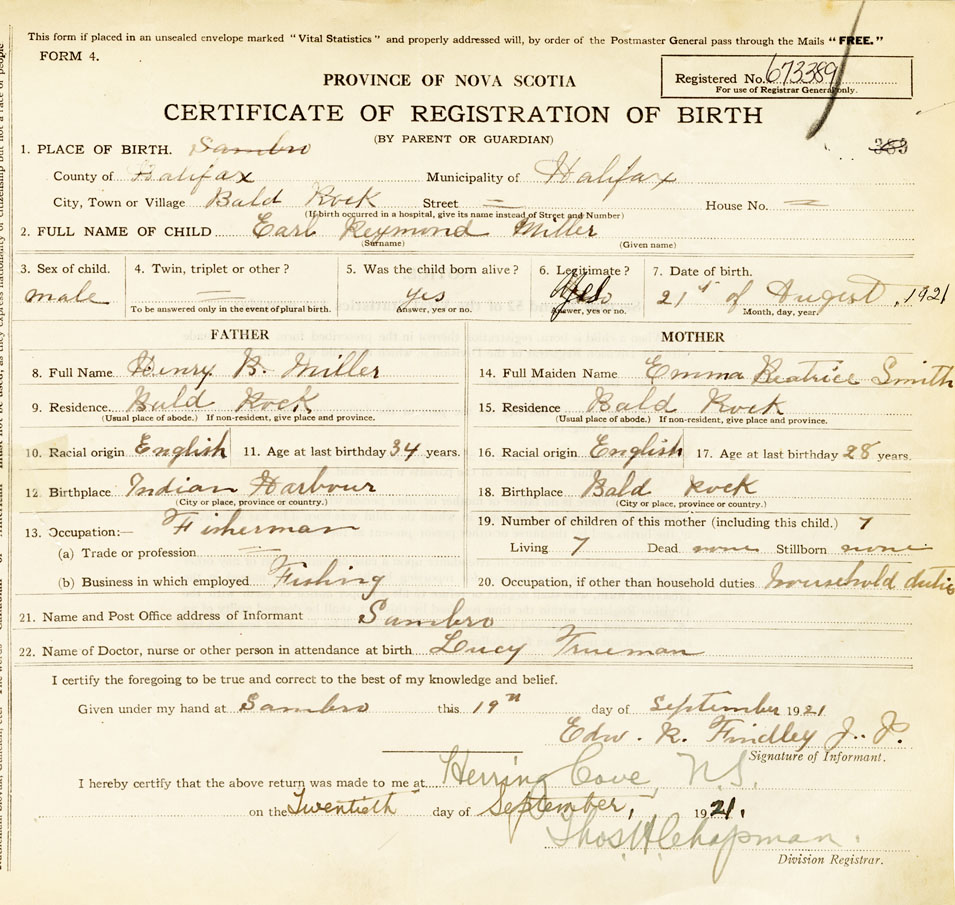 This form if placed in an unsealed envelope marked "Vital Statistics" and properly addressed will, by order of the Postmaster General pass through the Mails "FREE."
FORM 4.
PROVINCE OF NOVA SCOTIA
Registered No. 673389
For use of Registrar General only.
CERTIFICATE OF REGISTRATION OF BIRTH
(BY PARENT OR GUARDIAN)
1. PLACE OF BIRTH. Sambro
County of Halifax Municipality of Halifax
City, Town or Village Bald Rock Street = House No. =
(If birth occurred in a hospital, give its name instead of Street and Number)
2. FULL NAME OF CHILD Earl Reymond Miller
(Surname) (Given name)
3. Sex of child. 4. Twin, triplet or other? 5. Was the child born alive? 6. Legitimate? 7. Date of birth.
male = yes 21st of August, 1921
To be answered only in the event of plural birth. Answer, yes or no. Answer, yes or no. Month, day, year.
FATHER MOTHER
8. Full Name Henry B. Miller
9. Residence Bald Rock
(Usual place of abode.) If non-resident, give place and province.
10. Racial origin English 11. Age at last birthday 34 years.
12. Birthplace Indian Harbour
(City or place, province or country.)
13. Occupation:— Fisherman
(a) Trade or profession =
(b) Business in which employed Fishing
14. Full Maiden Name Emma Beatrice Smith
15. Residence Bald Rock
(Usual place of abode.) If non-resident, give place and province.
16. Racial origin English 17. Age at last birthday 28 years.
18. Birthplace Bald Rock
(City or place, province or country.)
19. Number of children of this mother (including this child.) 7
Living 7 Dead none Stillborn none
20. Occupation, if other than household duties Household duties
21. Name and Post Office address of Informant Sambro
22. Name of Doctor, nurse or other person in attendance at birth Lucy Trueman
I certify the foregoing to be true and correct to the best of my knowledge and belief.
Given under my hand at Sambro this 19th day of September 1921
Edw. R. Findley J. P.
Signature of Informant.
I hereby certify that the above return was made to me at Herring Cove, N.S.
on the Twentieth day of September, 1921.
Thos. H. Chapman.
Division Registrar.